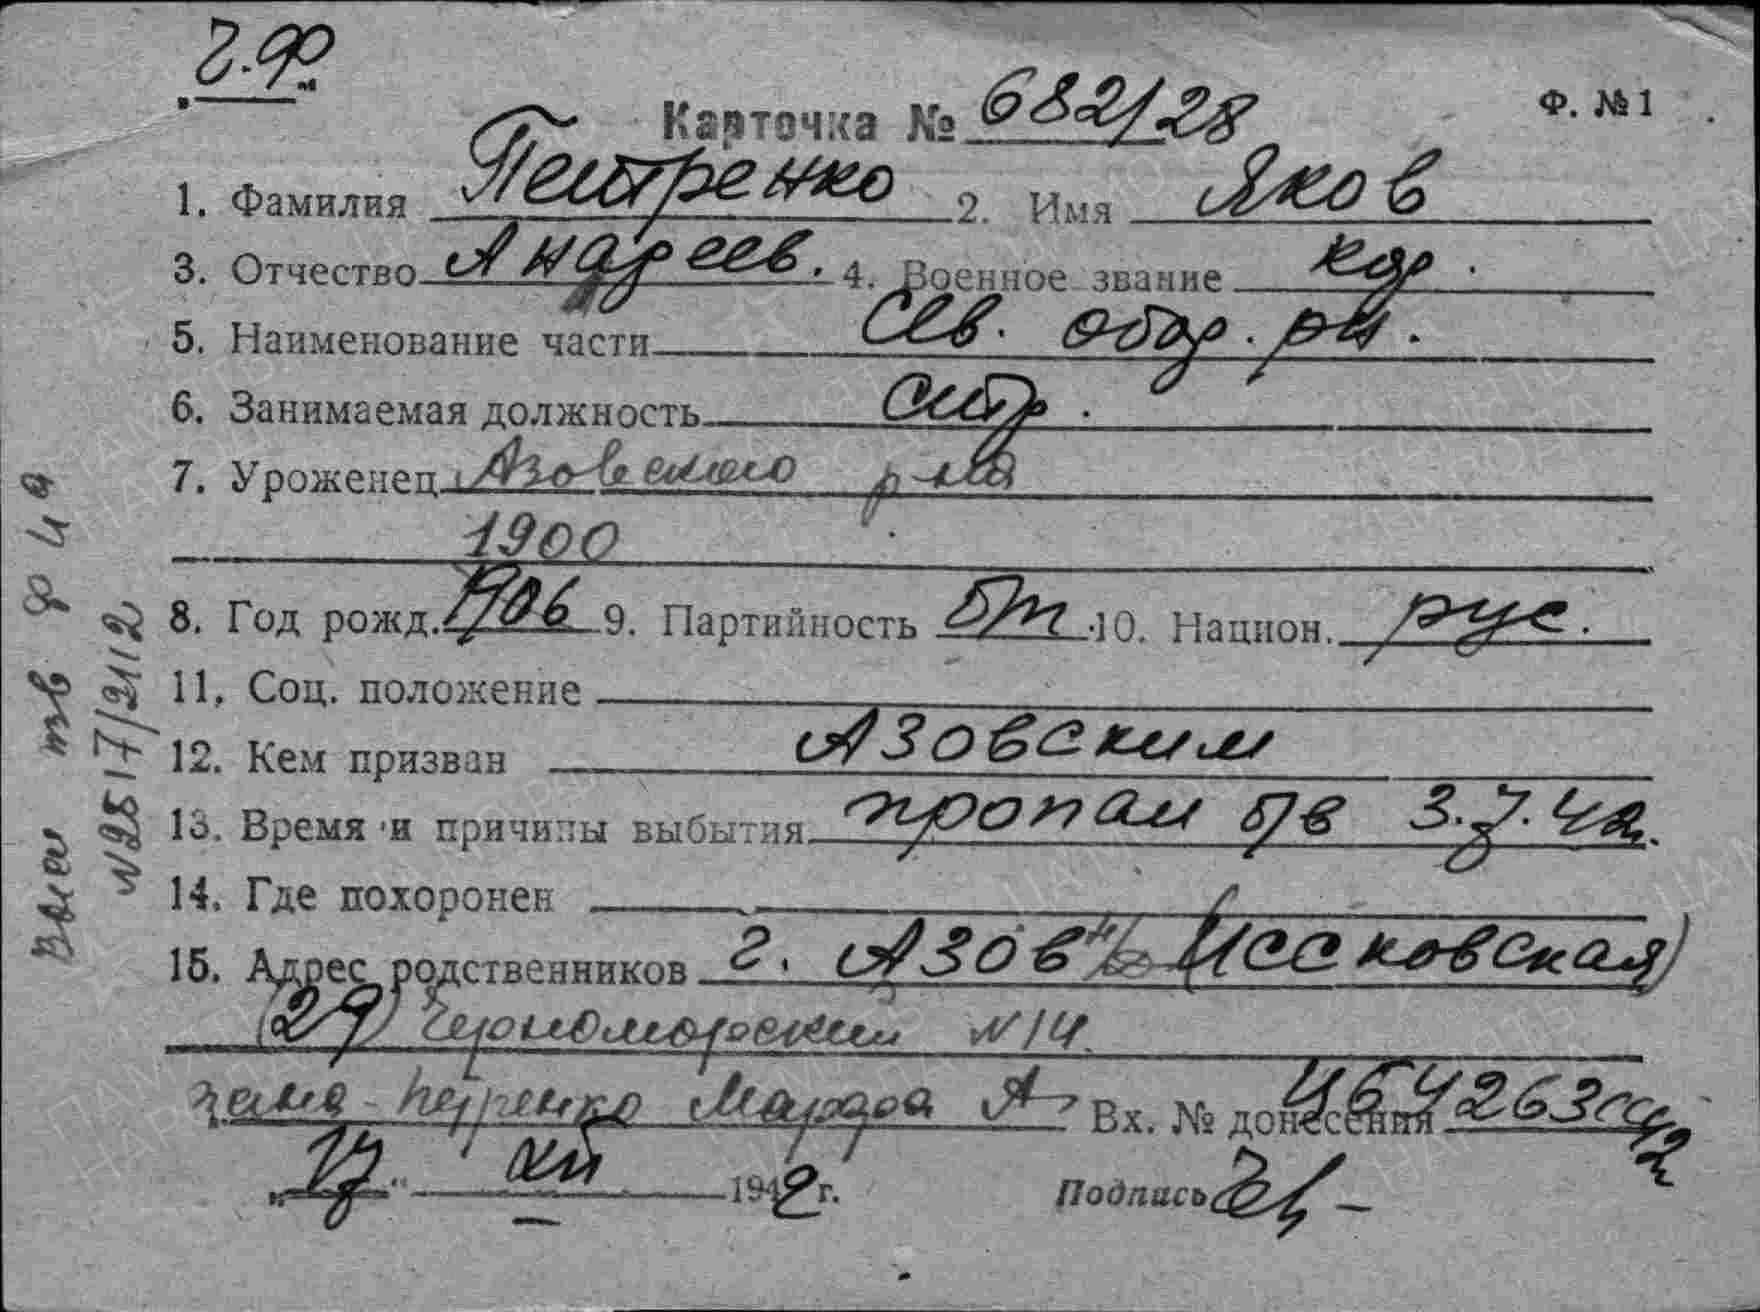 Г.Ф.
Карточка № 682/28
Ф. № 1
1. Фамилия Петренко 2. Имя Яков
3. Отчество Андреев. 4. Военное звание кр.
5. Наименование части Сев. обор. рн.
6. Занимаемая должность стр.
7. Уроженец Азовского р-на
1900
8. Год рожд. 1906 9. Партийность б/п 10. Национ. рус.
11. Соц. положение
12. Кем призван Азовским
13. Время и причины выбытия пропал б/в 3.7.42.
14. Где похоронен
15. Адрес родственников г. Азов (Иссковская)
(29) Черноморский N 14
жена - Петренко Марфа А Вх. № донесения 4264263сс42
"17" XII 1942 г. Подпись
N 2517/2112